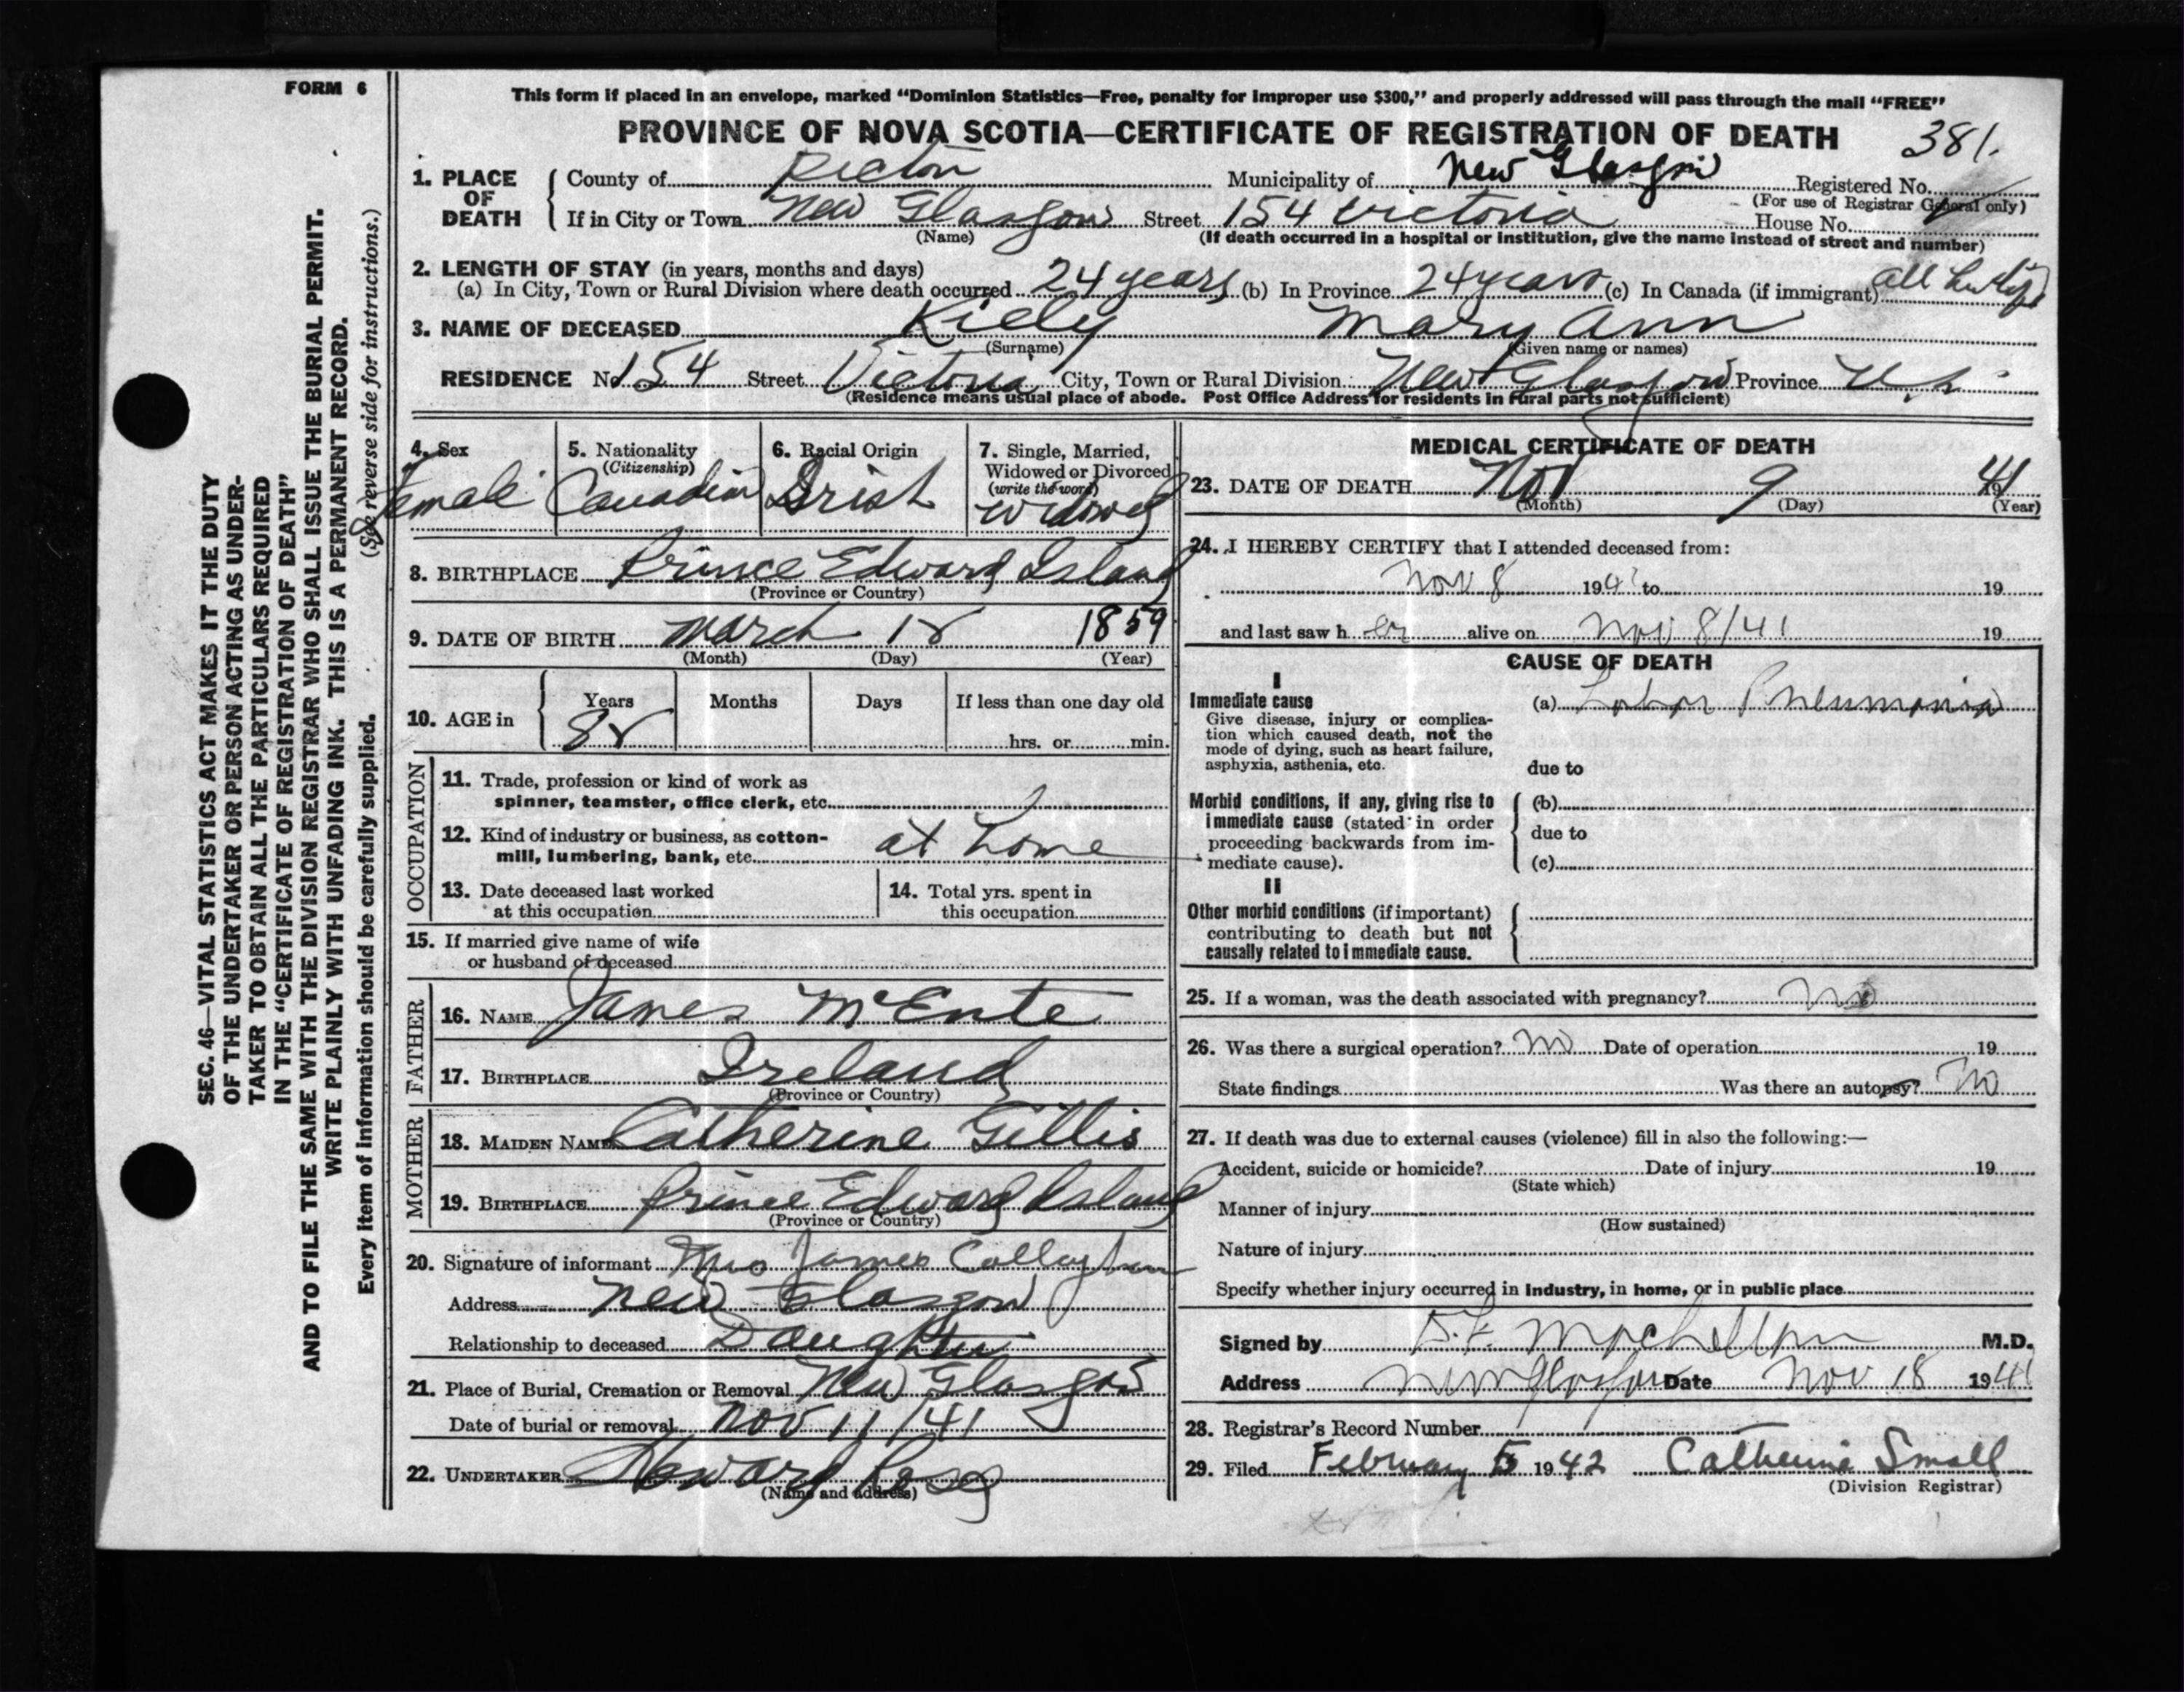 FORM 6
This form if placed in an envelope, marked “Dominion Statistics—Free, penalty for improper use $300,” and properly addressed will pass through the mail “FREE”
PROVINCE OF NOVA SCOTIA—CERTIFICATE OF REGISTRATION OF DEATH 381.
1. PLACE OF DEATH
County of Pictou Municipality of New Glasgow Registered No.
(For use of Registrar General only)
If in City or Town New Glasgow Street 154 Victoria House No.
(Name) (If death occurred in a hospital or institution, give the name instead of street and number)
2. LENGTH OF STAY (in years, months and days)
(a) In City, Town or Rural Division where death occurred 24 years (b) In Province 24 years (c) In Canada (if immigrant) all her life
3. NAME OF DECEASED Kiely Mary Ann
(Surname) (Given name or names)
RESIDENCE No 154 Street Victoria City, Town or Rural Division New Glasgow Province N.S.
(Residence means usual place of abode. Post Office Address for residents in rural parts not sufficient)
4. Sex 5. Nationality (Citizenship) 6. Racial Origin 7. Single, Married, Widowed or Divorced (write the word)
Female Canadian Irish Widowed
8. BIRTHPLACE Prince Edward Island
(Province or Country)
9. DATE OF BIRTH March 18 1859
(Month) (Day) (Year)
10. AGE in Years Months Days If less than one day old
82 hrs. or min.
OCCUPATION
11. Trade, profession or kind of work as
spinner, teamster, office clerk, etc.
12. Kind of industry or business, as cotton-
mill, lumbering, bank, etc. at home
13. Date deceased last worked
at this occupation
14. Total yrs. spent in
this occupation
15. If married give name of wife
or husband of deceased
FATHER
16. NAME James McEnte
17. BIRTHPLACE Ireland
(Province or Country)
MOTHER
18. MAIDEN NAME Catherine Gillis
19. BIRTHPLACE Prince Edward Island
(Province or Country)
20. Signature of informant Mrs James Callaghan
Address New Glasgow
Relationship to deceased Daughter
21. Place of Burial, Cremation or Removal New Glasgow
Date of burial or removal Nov 11/41
22. UNDERTAKER Howard
(Name and address)
MEDICAL CERTIFICATE OF DEATH
23. DATE OF DEATH Nov 9 1941
(Month) (Day) (Year)
24. I HEREBY CERTIFY that I attended deceased from:
Nov 8 1941 to 19
and last saw her alive on Nov 8/41 19
CAUSE OF DEATH
I
Immediate cause
Give disease, injury or complica-
tion which caused death, not the
mode of dying, such as heart failure,
asphyxia, asthenia, etc.
(a) Lobar Pneumonia
due to
Morbid conditions, if any, giving rise to
immediate cause (stated in order
proceeding backwards from im-
mediate cause).
(b)
due to
(c)
II
Other morbid conditions (if important)
contributing to death but not
causally related to immediate cause.
25. If a woman, was the death associated with pregnancy? No
26. Was there a surgical operation? No Date of operation 19
State findings Was there an autopsy? No
27. If death was due to external causes (violence) fill in also the following:—
Accident, suicide or homicide? Date of injury 19
(State which)
Manner of injury
(How sustained)
Nature of injury
Specify whether injury occurred in industry, in home, or in public place
Signed by M.D.
Address New Glasgow Date Nov 18 1941
28. Registrar's Record Number
29. Filed February 5 1942 Catherine Small
(Division Registrar)
SEC. 46—VITAL STATISTICS ACT MAKES IT THE DUTY
OF THE UNDERTAKER OR PERSON ACTING AS UNDER-
TAKER TO OBTAIN ALL THE PARTICULARS REQUIRED
IN THE “CERTIFICATE OF REGISTRATION OF DEATH”
AND TO FILE THE SAME WITH THE DIVISION REGISTRAR WHO SHALL ISSUE THE BURIAL PERMIT.
WRITE PLAINLY WITH UNFADING INK. THIS IS A PERMANENT RECORD.
Every item of information should be carefully supplied. (See reverse side for instructions.)